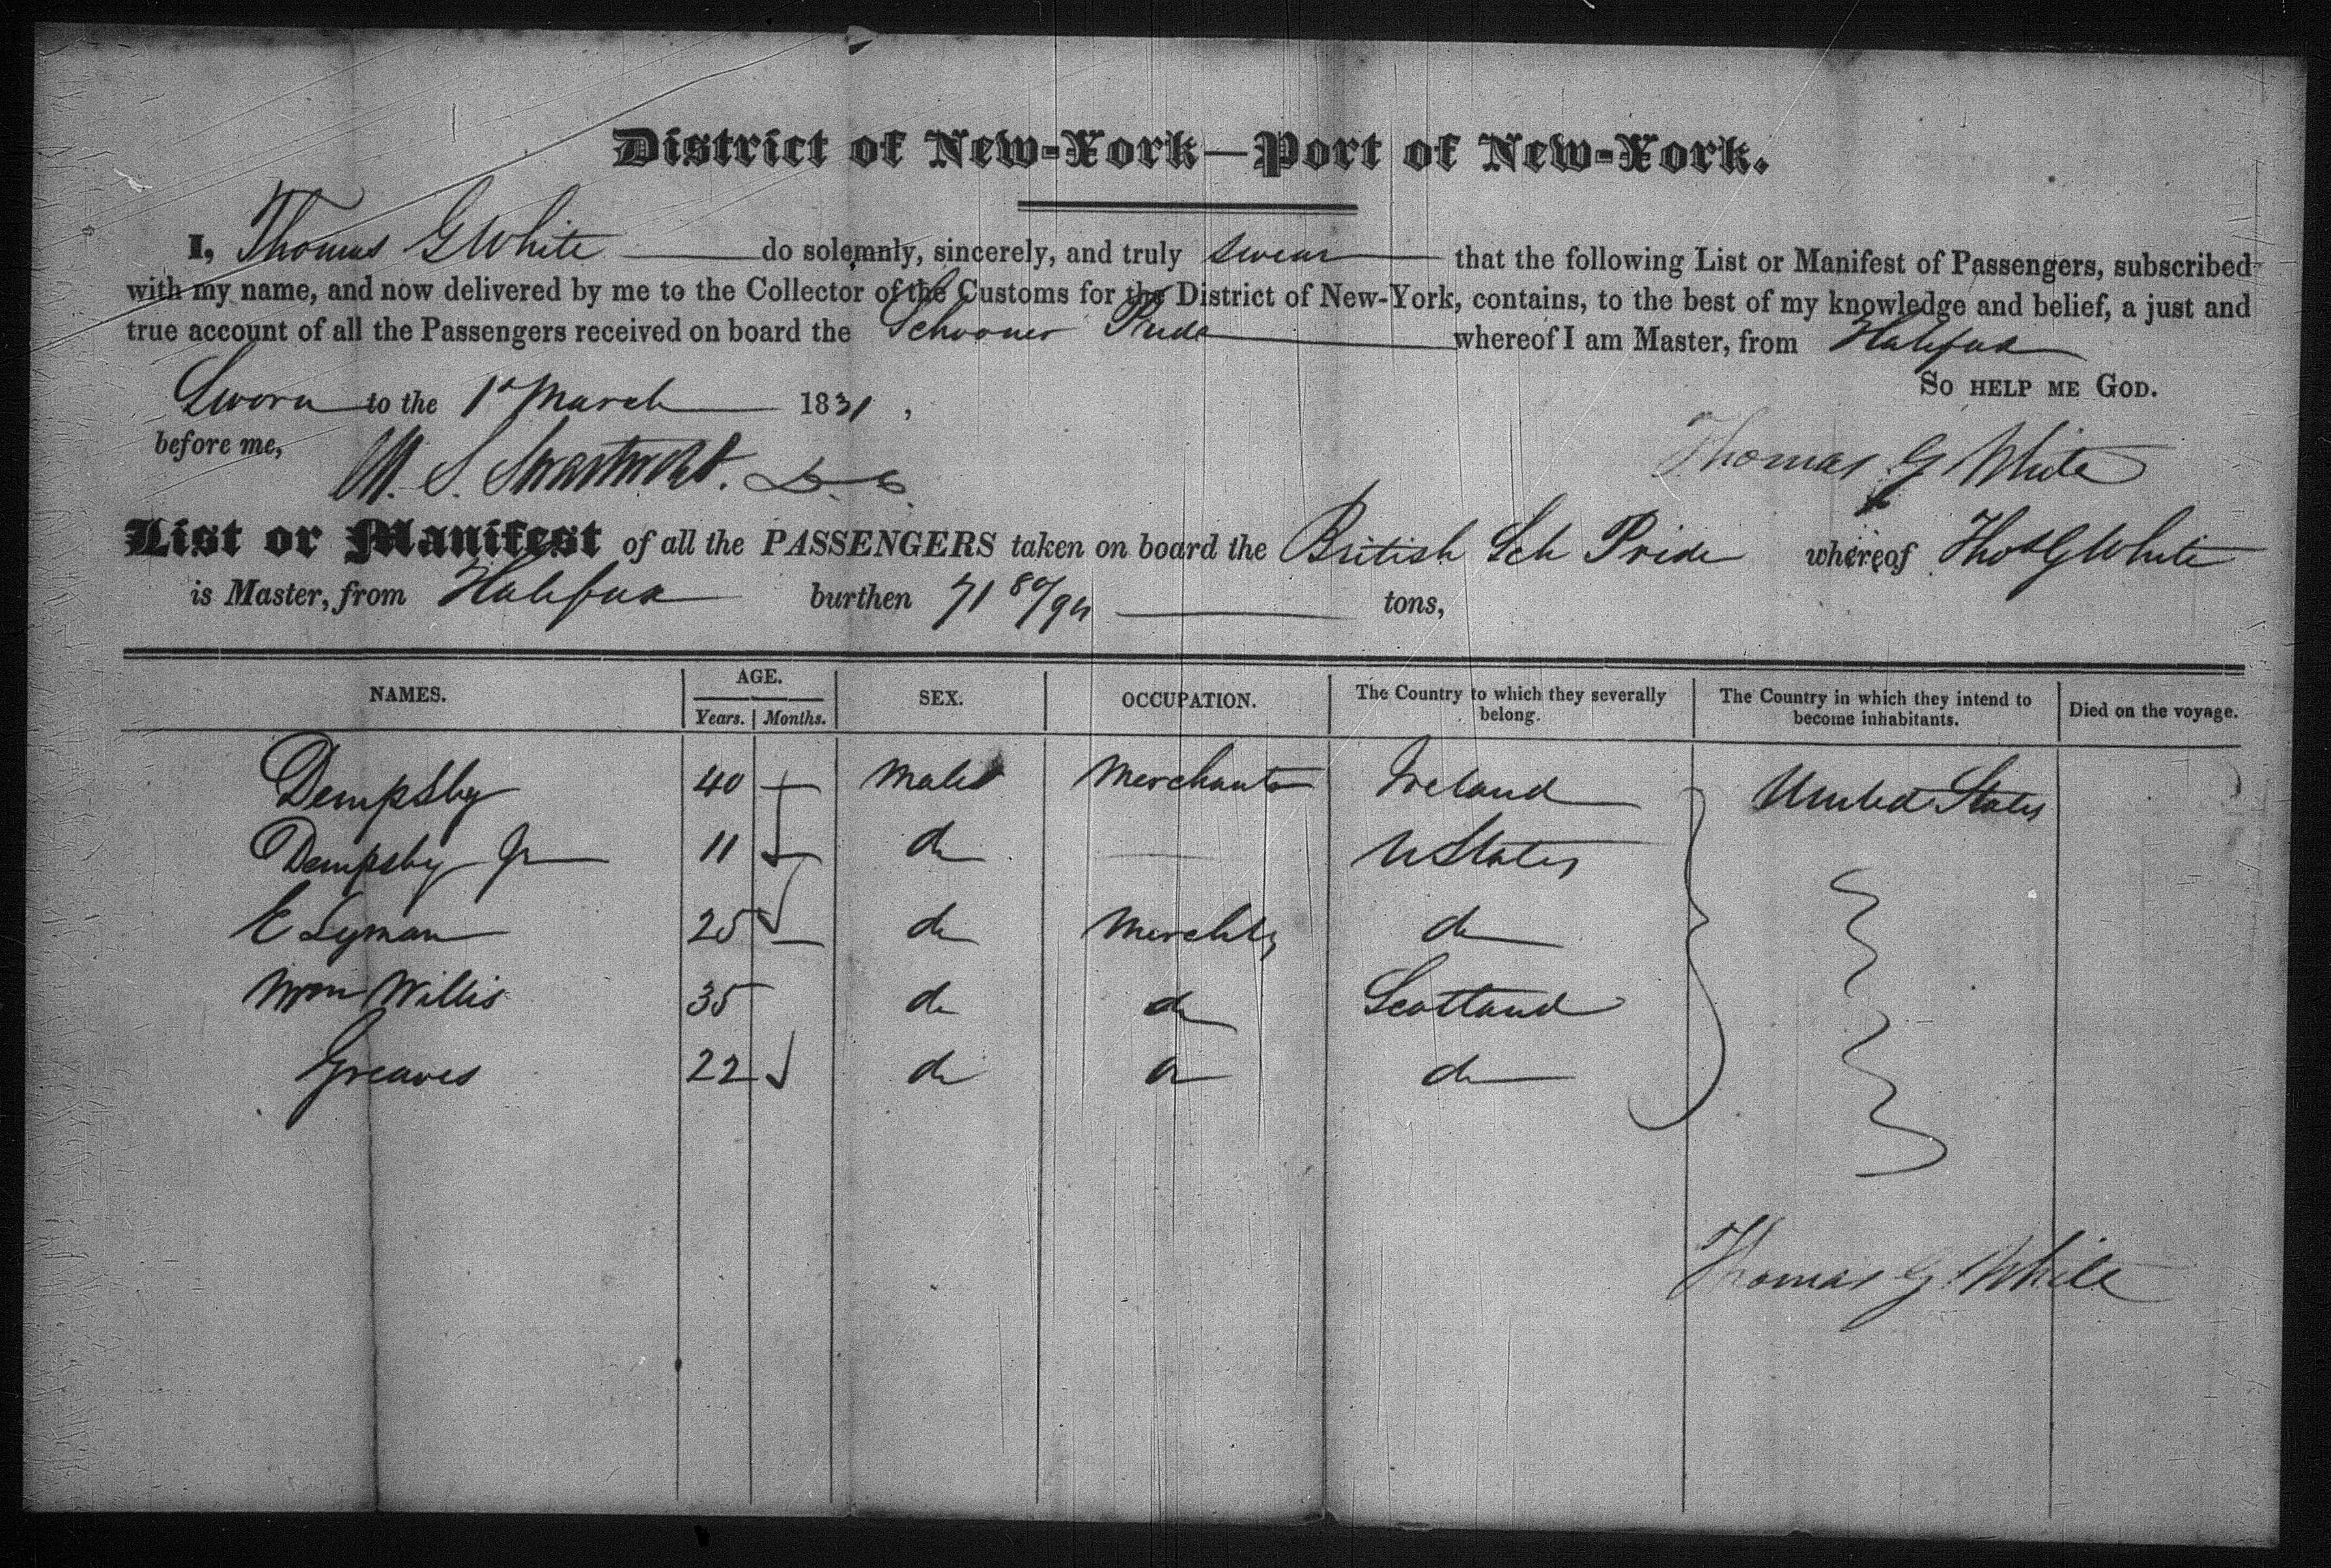 District of New-York—Port of New-York.
I, Thomas G White do solemnly, sincerely, and truly swear that the following List or Manifest of Passengers, subscribed
with my name, and now delivered by me to the Collector of the Customs for the District of New-York, contains, to the best of my knowledge and belief, a just and
true account of all the Passengers received on board the Schooner Pride whereof I am Master, from Halifax
So help me God.
Sworn to the 1st March 1831,
before me,
M. S. Swartwout. D. C.
Thomas G White
List or Manifest of all the PASSENGERS taken on board the British Sch Pride whereof Thos G White
is Master, from Halifax burthen 71 80/94 tons,
NAMES. AGE. Years. Months. SEX. OCCUPATION. The Country to which they severally belong. The Country in which they intend to become inhabitants. Died on the voyage.
Dempsby 40 Male Merchant Ireland United States
Dempsby Jr 11 do U States
E Lyman 25 do Mercht do
Wm Willis 35 do do Scotland
Greaves 22 do do do
Thomas G White